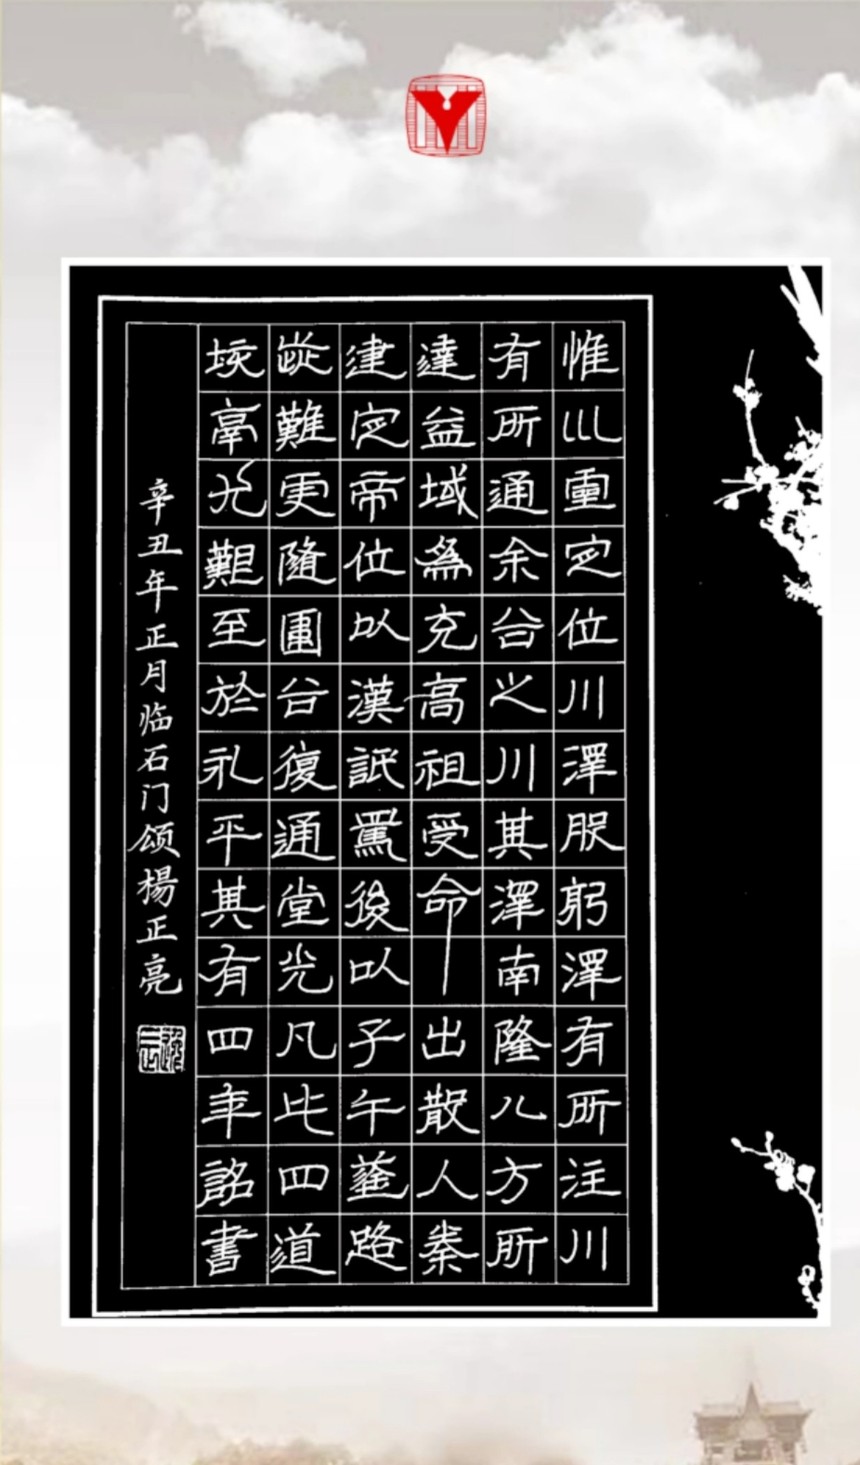 惟巛靈定位川澤股躬澤有所注川
有所通余谷之川其澤南隆八方所
達益域為充高祖受命出散入秦
建定帝位以漢詆焉後以子午塗路
歰難更隨圍谷復通堂光凡此四道
垓鬲尤艱至於永平其有四年詔書
辛丑年正月临石门颂楊正亮